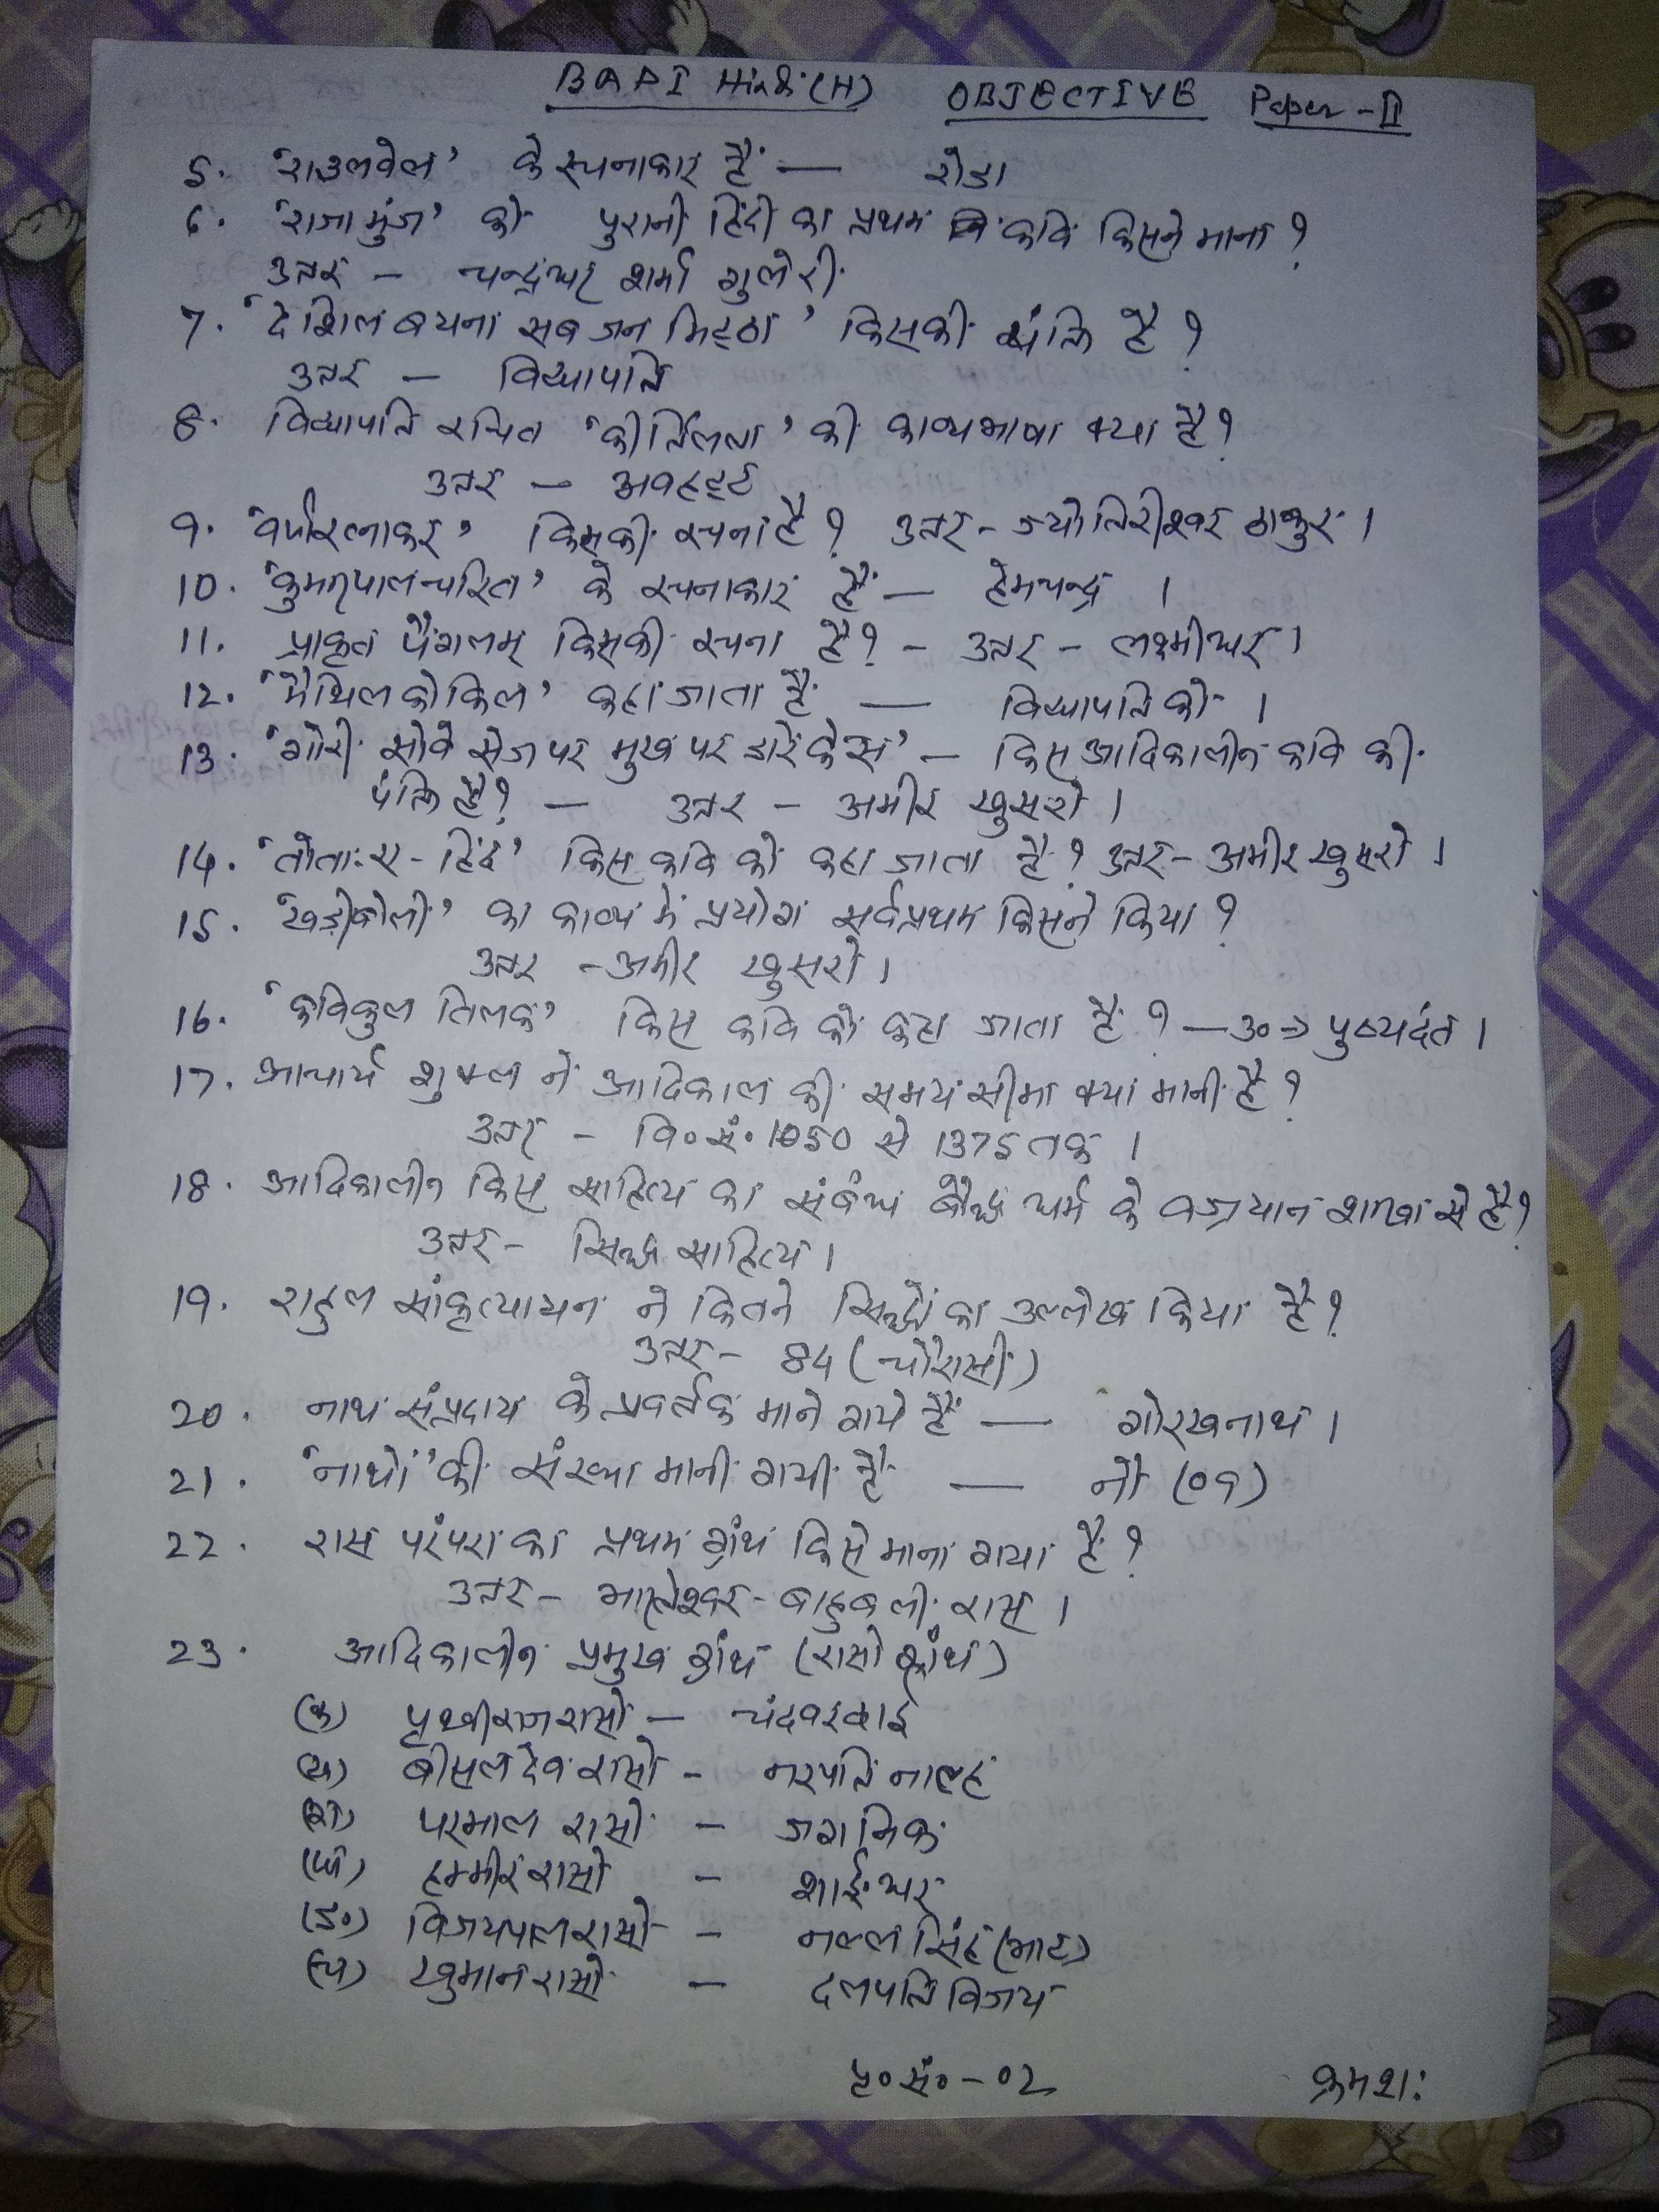 BA PI Hindi (H) OBJECTIVE Paper - II
5. 'राउलवेल' के रचनाकार हैं — रोडा
6. 'राजा मुंज' को पुरानी हिंदी का प्रथम कवि किसने माना ?
उत्तर — चन्द्रधर शर्मा गुलेरी
7. 'देशिल बयना सब जन मिट्ठा' किसकी पंक्ति है ?
उत्तर — विद्यापति
8. विद्यापति रचित 'कीर्तिलता' की काव्यभाषा क्या है ?
उत्तर — अवहट्ट
9. 'वर्णरत्नाकर' किसकी रचना है ? उत्तर - ज्योतिरीश्वर ठाकुर ।
10. 'कुमारपालचरित' के रचनाकार हैं — हेमचन्द्र ।
11. प्राकृत पैंगलम् किसकी रचना है ? - उत्तर - लक्ष्मीधर ।
12. 'मैथिल कोकिल' कहा जाता है — विद्यापति को ।
13. 'गोरी सोवे सेज पर मुख पर डारे केस' - किस आदिकालीन कवि की
पंक्ति है ? — उत्तर - अमीर खुसरो ।
14. 'तोता-ए-हिंद' किस कवि को कहा जाता है ? उत्तर - अमीर खुसरो ।
15. 'खड़ीबोली' का काव्य में प्रयोग सर्वप्रथम किसने किया ?
उत्तर - अमीर खुसरो ।
16. 'कविकुल तिलक' किस कवि को कहा जाता है ? — उ० => पुष्यदंत ।
17. आचार्य शुक्ल ने आदिकाल की समय सीमा क्या मानी है ?
उत्तर - वि० सं० 1050 से 1375 तक ।
18. आदिकालीन किस साहित्य का संबंध बौद्ध धर्म के वज्रयान शाखा से है ?
उत्तर - सिद्ध साहित्य ।
19. राहुल सांकृत्यायन ने कितने सिद्धों का उल्लेख किया है ?
उत्तर - 84 (चौरासी)
20. नाथ संप्रदाय के प्रवर्तक माने गये हैं — गोरखनाथ ।
21. 'नाथों' की संख्या मानी गयी है — नौ (09)
22. रास परंपरा का प्रथम ग्रंथ किसे माना गया है ?
उत्तर - भरतेश्वर - बाहुबली रास ।
23. आदिकालीन प्रमुख ग्रंथ (रासो ग्रंथ)
(क) पृथ्वीराज रासो — चंदवरदाई
(ख) बीसलदेव रासो - नरपति नाल्ह
(ग) परमाल रासो - जगनिक
(घ) हम्मीर रासो - शार्ङ्गधर
(ङ०) विजयपाल रासो - नल्ल सिंह (भाट)
(च) खुमान रासो - दलपति विजय
पृ० सं० - 02 क्रमशः